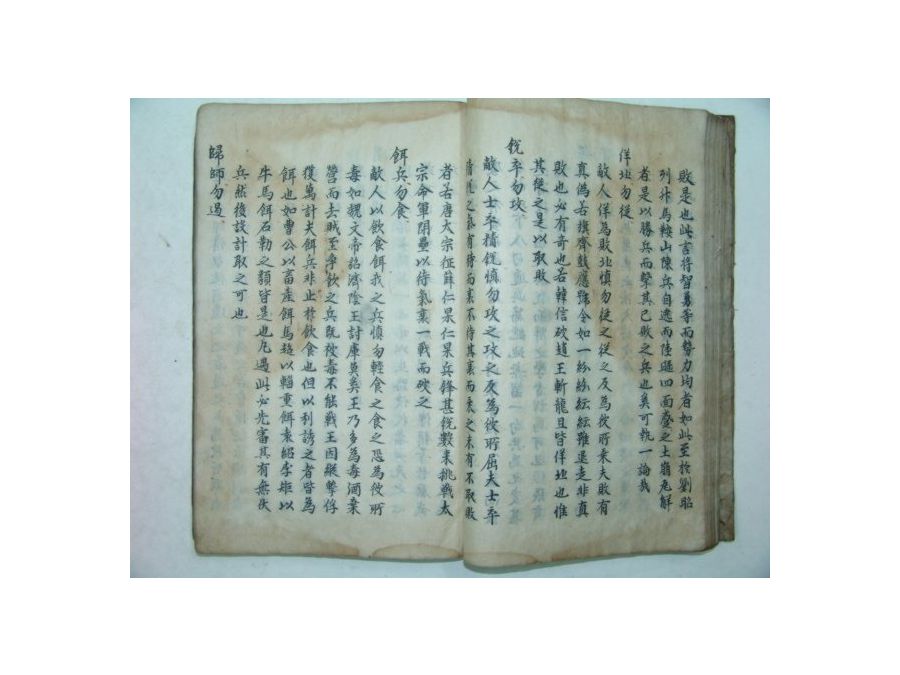 敗是也此言将智勇等而勢力均者如此至於劉昭
列於馬鞍山陳兵自遶而陸遜四面蹙之土崩瓦解
者是以勝兵而擊其已敗之兵也奚可執一論哉
佯北勿從
敵人佯為敗北慎勿從之從之反為彼所乘夫敗有
真偽若旗齊鼓應號令如一紛紛紜紜雖退走非真
敗也必有奇也若韓信破趙王斬龍且皆佯北也惟
其從之是以取敗
銳卒勿攻
敵人士卒精銳慎勿攻之攻之反為彼所屈夫士卒
精銳之氣有待而衰不待其衰而乘之未有不取敗
者若唐太宗征薛仁杲仁杲兵鋒甚銳數来挑戰太
宗命軍閉壘以待氣衰一戰而破之
餌兵勿食
敵人以飲食餌我之兵慎勿輕食之食之恐為彼所
毒如魏文帝詔濟陰王討庫莫奚王乃多為毒酒棄
營而去賊至爭飲之兵既被毒不能戰王因縱擊俘
獲萬計夫餌兵非止於飲食也但以利誘之者皆為
餌也如曹公以畜産餌馬超以輜重餌袁紹李矩以
牛馬餌石勒之類皆是也凡遇此必先審其有無伏
兵然後設計取之可也
歸師勿遏